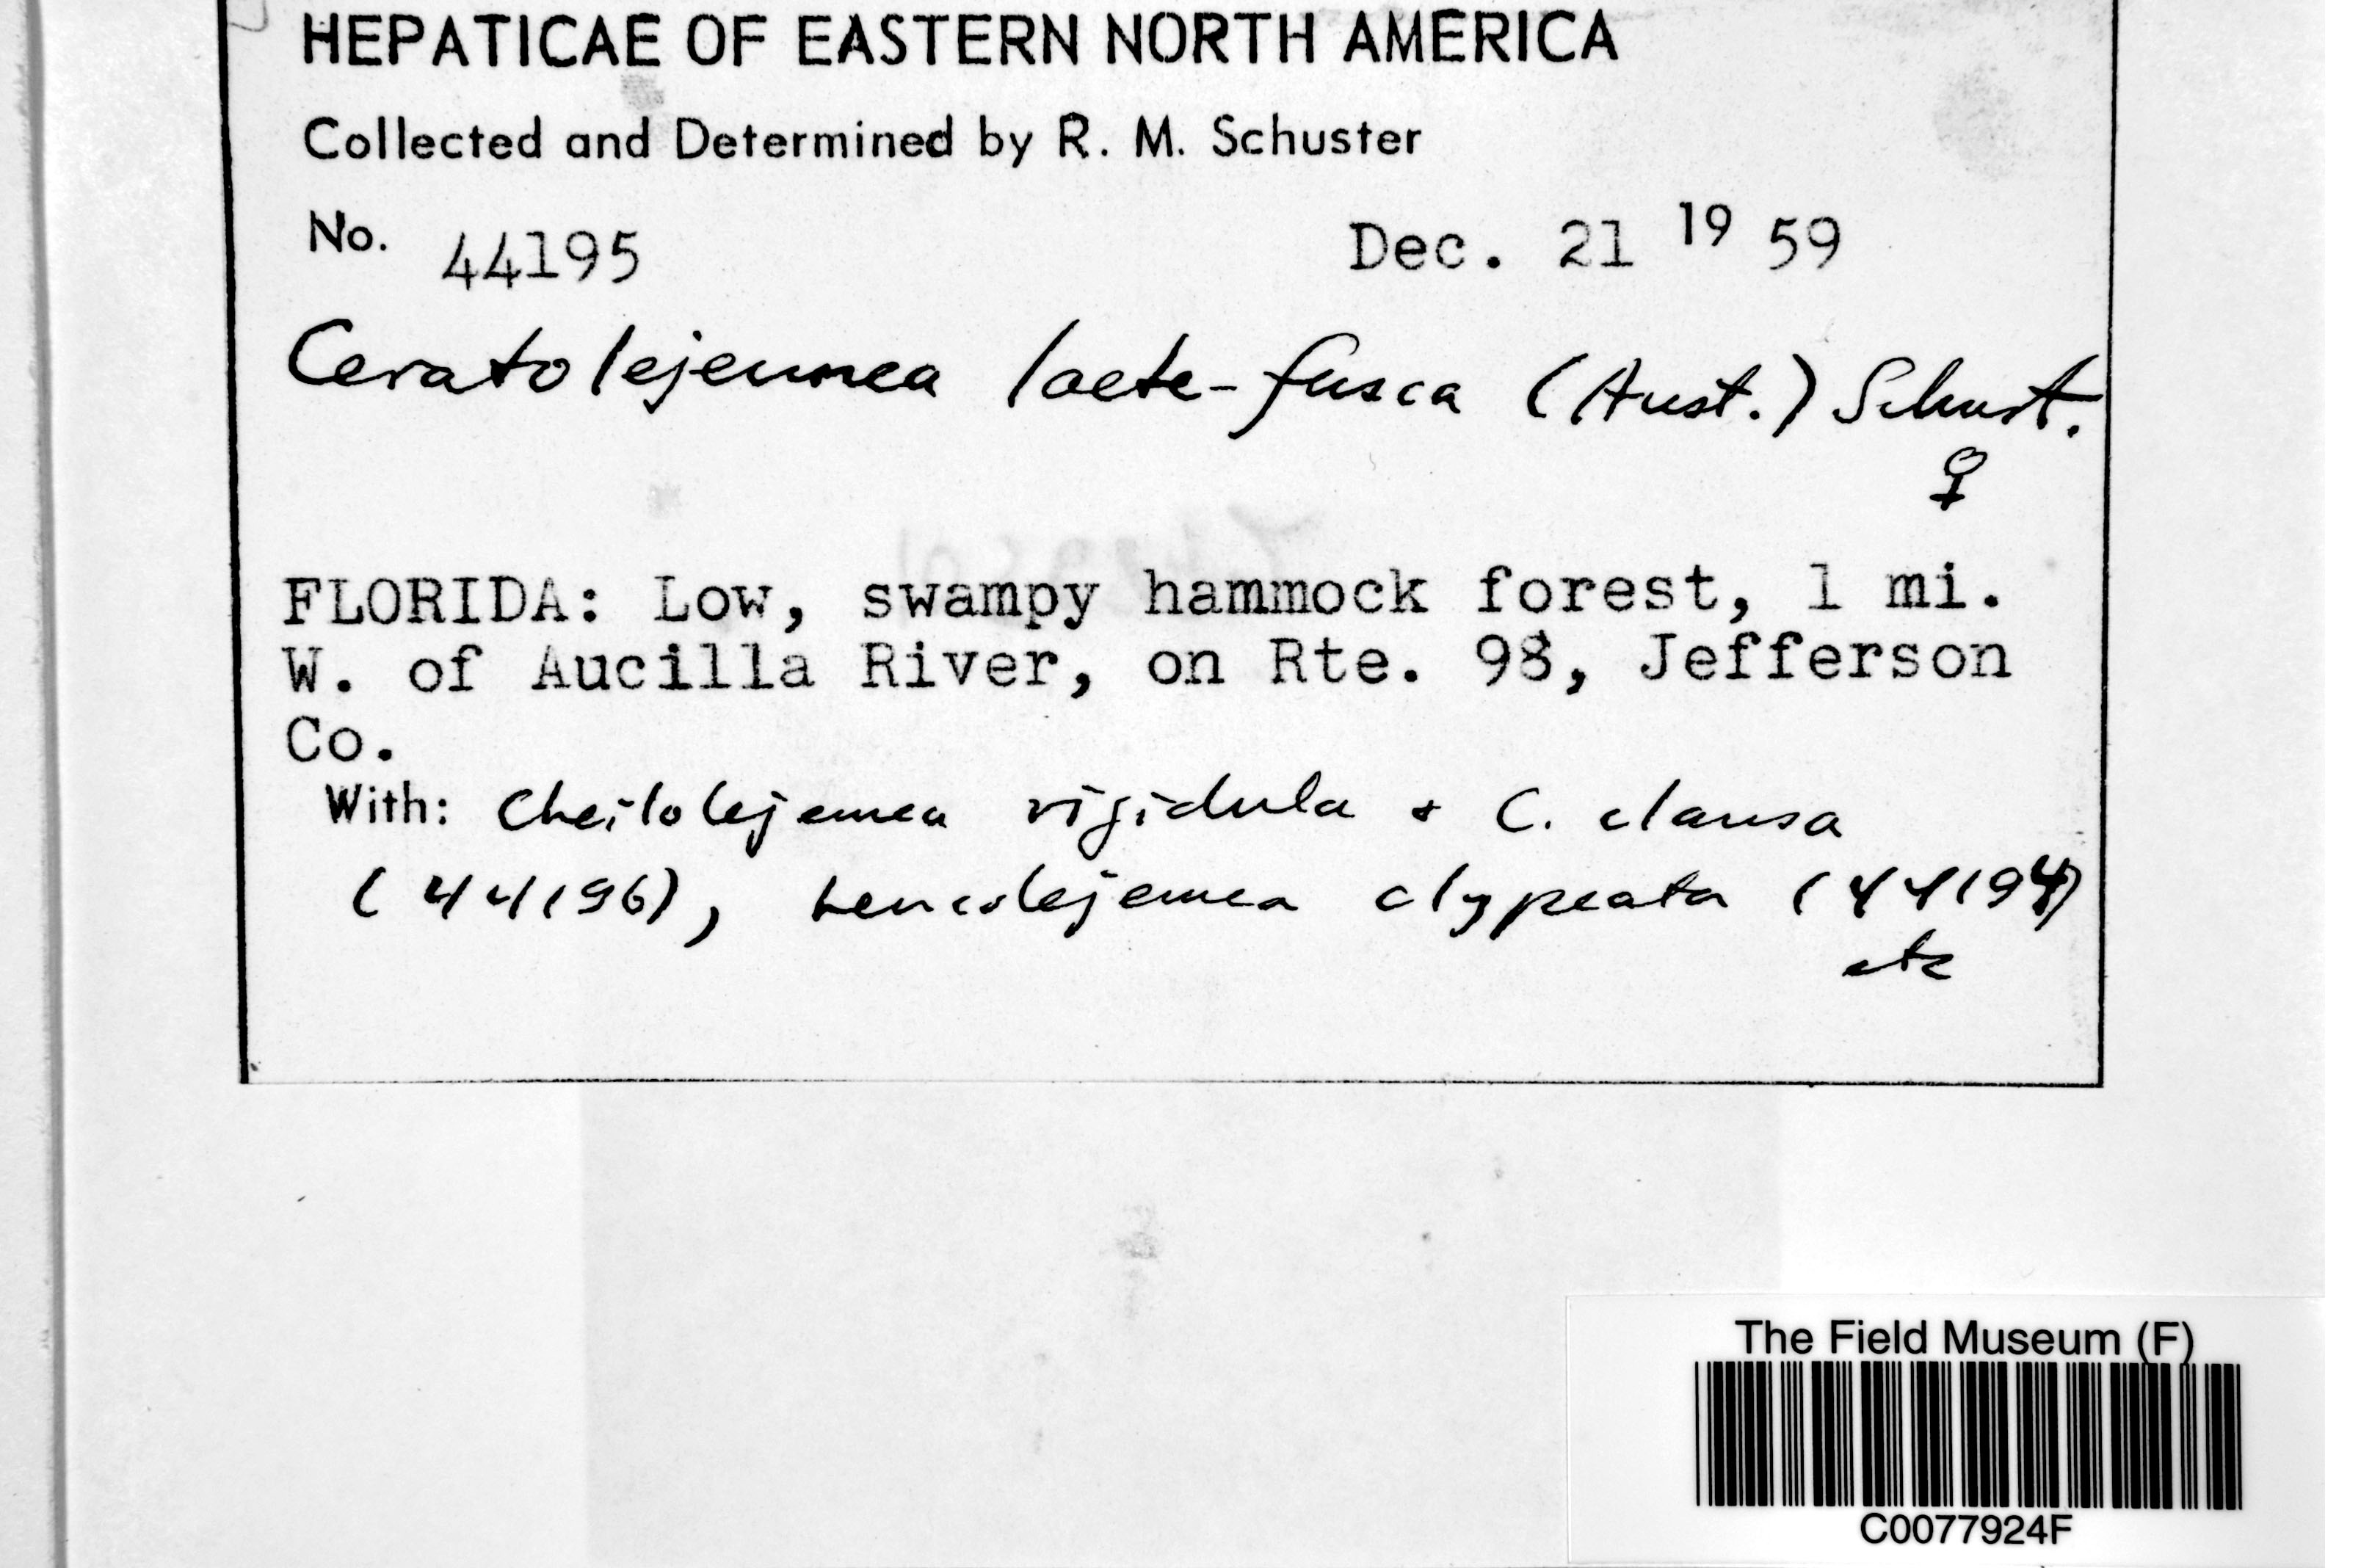 HEPATICAE OF EASTERN NORTH AMERICA
Collected and Determined by R. M. Schuster
No. 44195 Dec. 21 19 59
Ceratolejeunea laete-fusca (Aust.) Schust.
♀
FLORIDA: Low, swampy hammock forest, 1 mi.
W. of Aucilla River, on Rte. 98, Jefferson
Co.
With: Cheilolejeunea rigidula + C. clausa
(44196), Leucolejeunea clypeata (44194)
etc
The Field Museum (F)
C0077924F